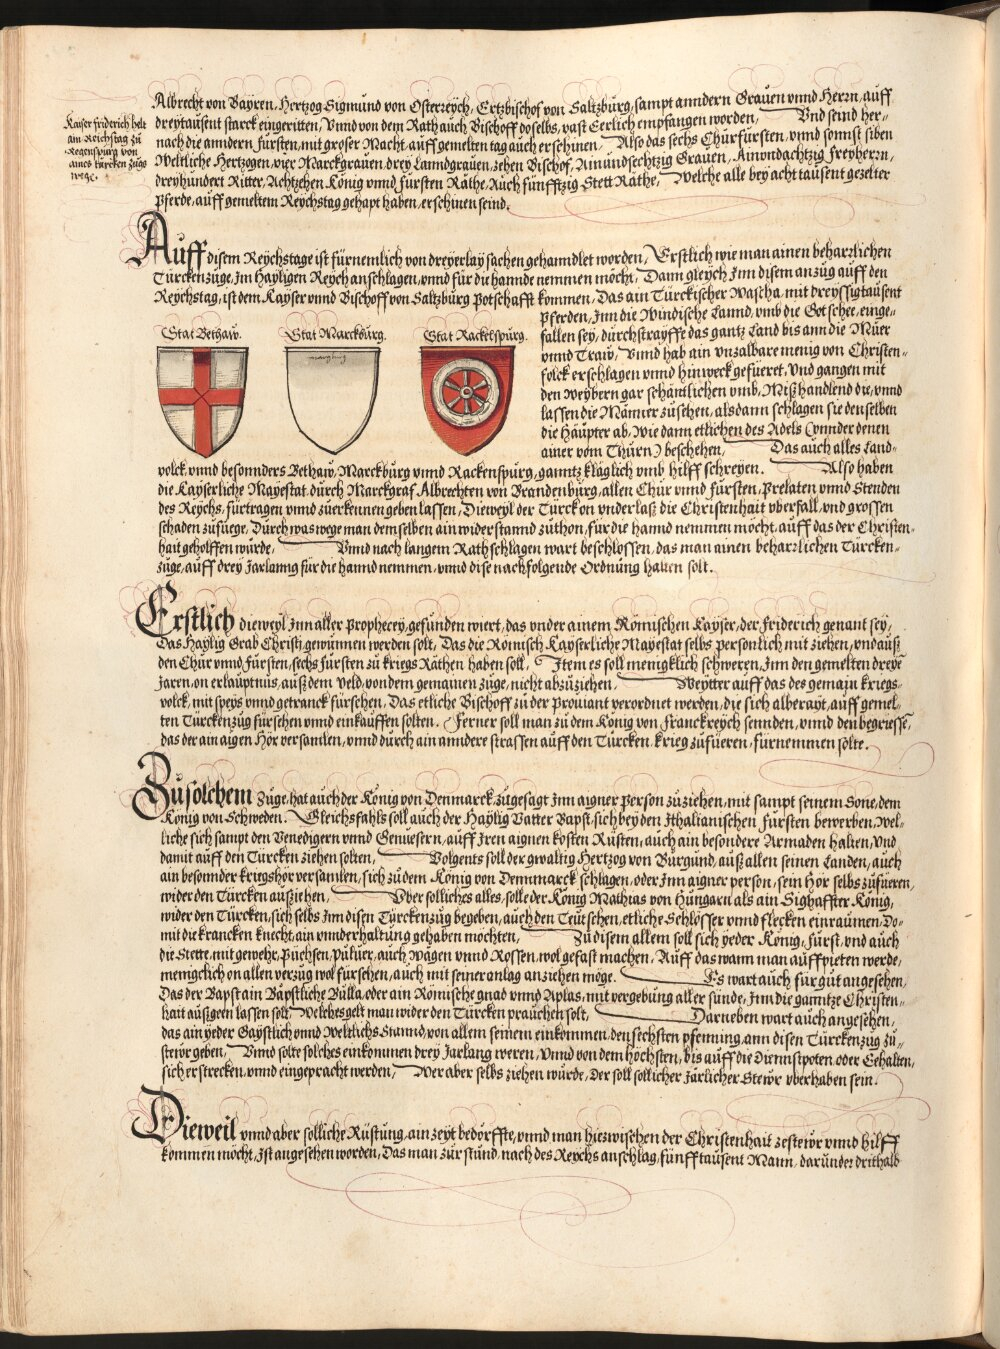 Kaiser friderich helt
ain Reichstag zu
Regenspurg von
aines türcken zugs
wege.
Albrecht von Bayren, Hertzog Sigmund von Osterreych, Ertzbischof von Saltzburg, sampt anndern Grauen vnnd Herrn, auff
dreytausent starck eingeritten, Vnnd von dem Rath auch Bischoff doselbs, vast Eerlich empfangen worden, Vnd seind her-
nach die anndern fürsten, mit groser Macht, auff gemelten tag auch erschinen, Also das sechs Churfürsten, vnnd sonnst siben
Weltliche Hertzogen, vier Marckgrauen, drey Lanndgrauen, zehen Bischof, Ainundsechtzig Grauen, Ainvndachtzig freyherrn,
dreyhundert Ritter, Achtzehen König vnnd fürsten Räthe, Auch fünfftzig Stett Räthe, Welche alle bey acht tausent gezelter
Pferde, auff gemeltem Reychstag gehapt haben, erschinen seind.
Auff disem Reychstage ist fürnemlich von dreyerlay sachen gehanndlet worden, Erstlich wie man ainen beharrlichen
Türckenzüge, Im Hayligen Reych anschlagen, vnnd für die hannde nemmen möcht, Dann gleych Inn disem anzug auff den
Reychstag, ist dem Kayser vnnd Bischoff von Saltzburg Potschafft kommen, Das ain Türckischer Wascha, mit dreyssigtausent
Pferden, Inn die Windische Lannd, vmb die Gotschee, einge-
fallen sey, durchstrayffte das gantz Land bis ann die Müer
vnnd Traw, Vnnd hab ain vnzalbare menig von Christen-
folck erschlagen vnnd hinweck gefueret, Vnd gangen mit
den Weybern gar schäntlichen vmb, Mißhandlend die, vnnd
lassen die Männer zusehen, alsdann schlagen sie denselben
die Häupter ab, Wie dann etlichen des Adels (vnnder denen
ainer vom Thurn) beschehen, Das auch alles Land-
Stat Bethaw.
Stat Marckburg.
Stat Rackelspurg.
volck vnnd besonnders Bethaw, Marckburg vnnd Rackenspurg, ganntz kläglich vmb hilff schreyen. Also haben
die Kayserliche Mayestat durch Marckgraf Albrechten von Brandenburg, allen Chur vnnd fürsten, Prelaten vnnd Stenden
des Reychs, fürtragen vnnd zuerkennen geben lassen, Dieweyl der Türck on vnderlaß die Christenhait vberfall, vnd grossen
schaden zufuege, Durch was wege man demselben ain widerstannd zuthon, für die hannd nemmen möcht, auff das der Christen-
hait geholffen würde, Vnnd nach langem Rathschlagen wart beschlossen, das man ainen beharrlichen Türcken-
züge, auff drey Jarlanng für die hannd nemmen, vnnd dise nachfolgende Ordnung halten solt.
Erstlich dieweyl Inn aller Prophecey, gefunden wiert, das vnder ainem Römischen Kayser, der friderich genant sey,
Das Haylig Grab Christi, gewunnen werden solt, Das die Römisch Kayserliche Mayestat selbs Personlich mit ziehen, vnd auß
den Chur vnnd fürsten, sechs fürsten zu kriegs Räthen haben soll, Item es soll menigklich schweren, Inn den gemelten dreyē
Jaren, on erlauptnus, auß dem veld, von dem gemainen züge, nicht abzuziehen, Weytter auff das des gemain kriegs-
volck, mit speys vnnd getranck fürsehen, Das etliche Bischoff zu der Prouiant verordnet werden, die sich alberayt, auff gemel-
ten Türckenzüg fürsehen vnnd einkauffen solten. Ferner soll man zu dem König von Franckreych sennden, vnnd den begriessē,
das der ain aigen Hör versamlen, vnnd durch ain anndere strassen auff den Türcken, krieg zufüeren, fürnemmen solte.
Zu solchem Züge, hat auch der König von Denmarck zugesagt Inn aigner Person zuziehen, mit sampt seinem Sone, dem
König von Schweden. Gleichsfahls soll auch der Haylig Vatter Bapst, sich bey den Ithalianischen Fürsten bewerben, wel-
liche sich sampt den Venedigern vnnd Genuesern, auff Iren aignen kosten Rüsten, auch ain besondere Armaden halten, Vnd
damit auff den Türcken ziehen solten, Volgents soll der gwaltig Hertzog von Burgund, auß allen seinen Landen, auch
ain besonnder kriegshör versamlen, sich zu dem König von Dennmarck schlagen, oder Inn aigner person, sein Hör selbs zufüeren,
wider den Türcken ausziehen, Vber solliches alles, solle der König Mathias von Hungarn als ain Sighaffter König,
wider den Türcken, sich selbs Inn disen Türckenzüg begeben, auch den Teütschen, etliche Schlösser vnnd flecken einraumen, Do-
mit die krancken knecht, ain vnnderhaltung gehaben möchten, Zu disem allem soll sich yeder König, fürst, vnd auch
die Stette, mit gewehr, Püchsen, Puluer, auch Wägen vnnd Rossen, wol gefast machen, Auff das wann man auffpieten werde,
menigclich on allen verzüg wol fürsehen, auch mit seiner anlag anziehen möge. Es wart auch für gut angesehen,
Das der Bapst ain Bäpstliche Bulla, oder ain Römische gnad vnnd Aplas, mit vergebung aller sünde, Inn die ganntze Christen-
hait außgeen lassen soll, Welches gelt man wider den Türcken prauchen solt, Darneben wart auch angesehen,
das ain yeder Gaystlich vnnd Weltlichs Stannd, von allem seinem einkommen, den sechsten pfenning, ann disen Türckenzüg zu
stewr geben, Vnnd solte solches einkommen drey Jarlang weren, Vnnd von dem höchsten, bis auff die Diennstpoten oder Gehalten,
sich erstrecken, vnnd eingepracht werden, Wer aber selbs ziehen würde, der soll sollicher Järlicher Stewr vberhaben sein.
Dieweil vnnd aber solliche Rüstung, ain zeyt bedörffte, vnnd man hiezwischen der Christenhait zestewr vnnd hilff
kommen möcht, Ist angesehen worden, Das man zur stund, nach des Reychs anschlag, fünfftausent Mann, darunder drithalb